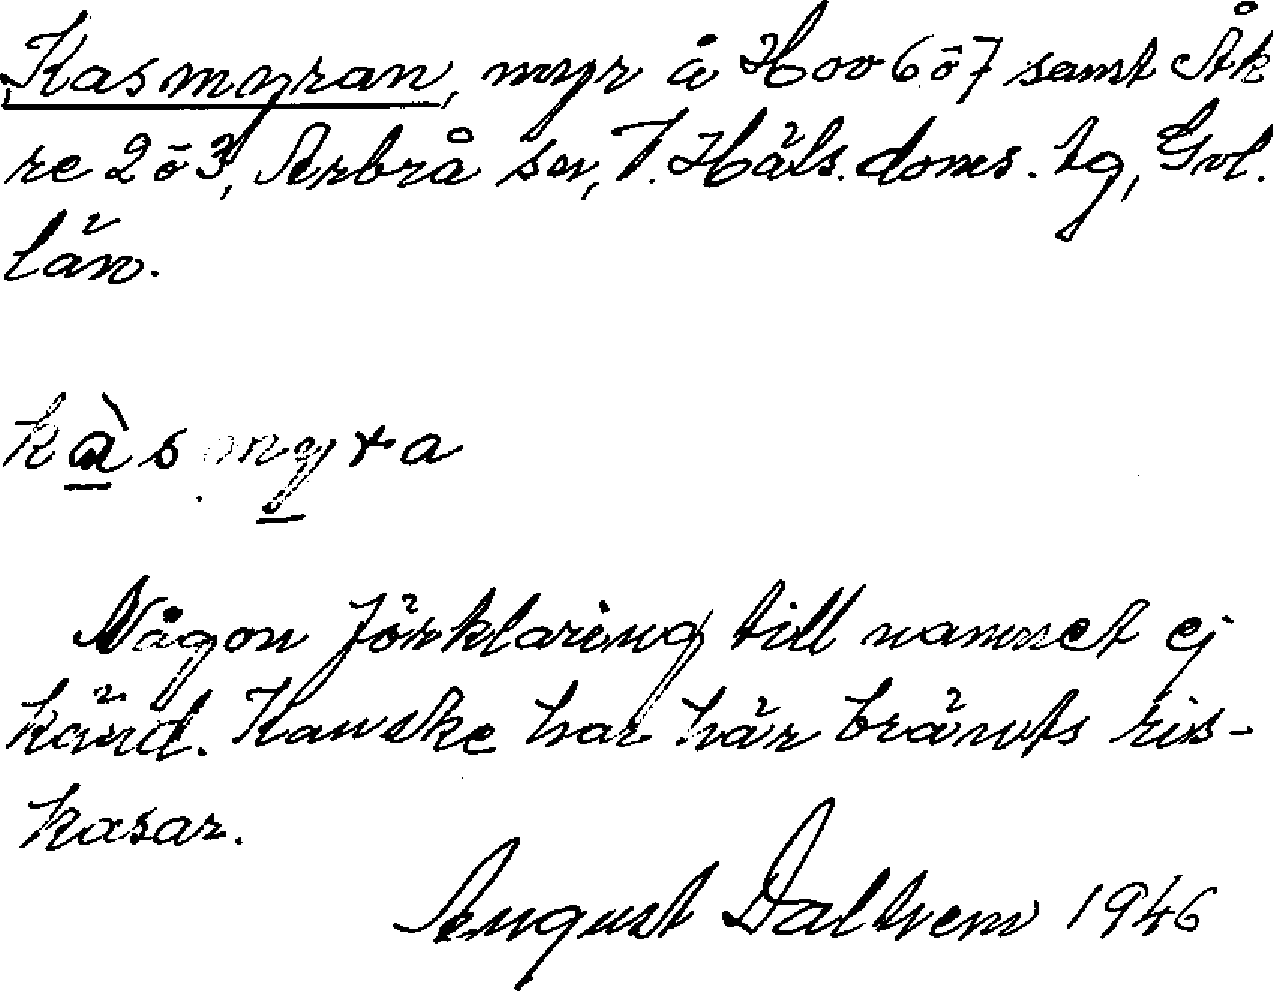 Kasmyran, myr å Hov 6 o 7 samt Åk
re 2 o 3, Arbrå sn, V. Häls. doms. tg, Gvl.
län.
kàsmyra
Någon förklaring till namnet ej
känd. Kanske har här bränts ris-
kasar.
August Daltrem 1946